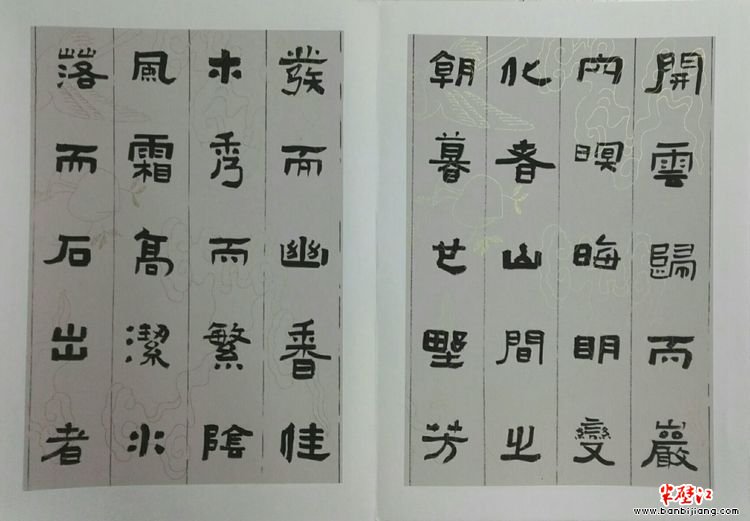 開雲歸而巖
穴暝晦明變
化者山間之
朝暮也野芳
發而幽香佳
木秀而繁陰
風霜高潔水
落而石出者
半壁江
www.banbijiang.com